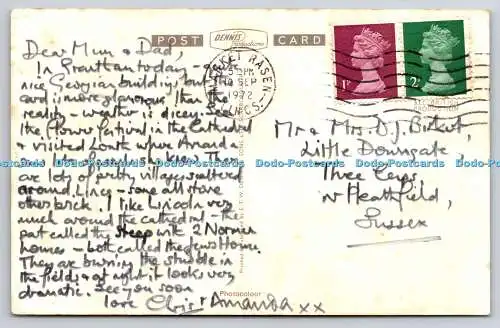 POST CARD
DENNIS
Productions
Dear Mum & Dad,
In Grantham today - some
nice Georgian buildings but the
card is more glamorous than the
reality - weather is dicey. See
the Flower Festival in the Cathedral
& visited Louth where Amanda
are lots of pretty villages scattered
around Lincs - some all stone
other brick. I like Lincoln very
much around the cathedral - the
part called the Steep with 2 Norman
homes - both called the Jews House.
They are burning the stubble in
the fields & at night it looks very
dramatic. See you soon
love Chris & Amanda xx
MARKET RASEN
5 PM
SEP
1972
LINCS.
1P
2
Mr & Mrs. D.J. Birket,
Little Downgate,
Three Cups,
Nr Heathfield,
Sussex
Photocolour
Dodo-Postcards Dodo-Postcards Dodo-Postcards Dodo-Postcards Dodo-Postcards